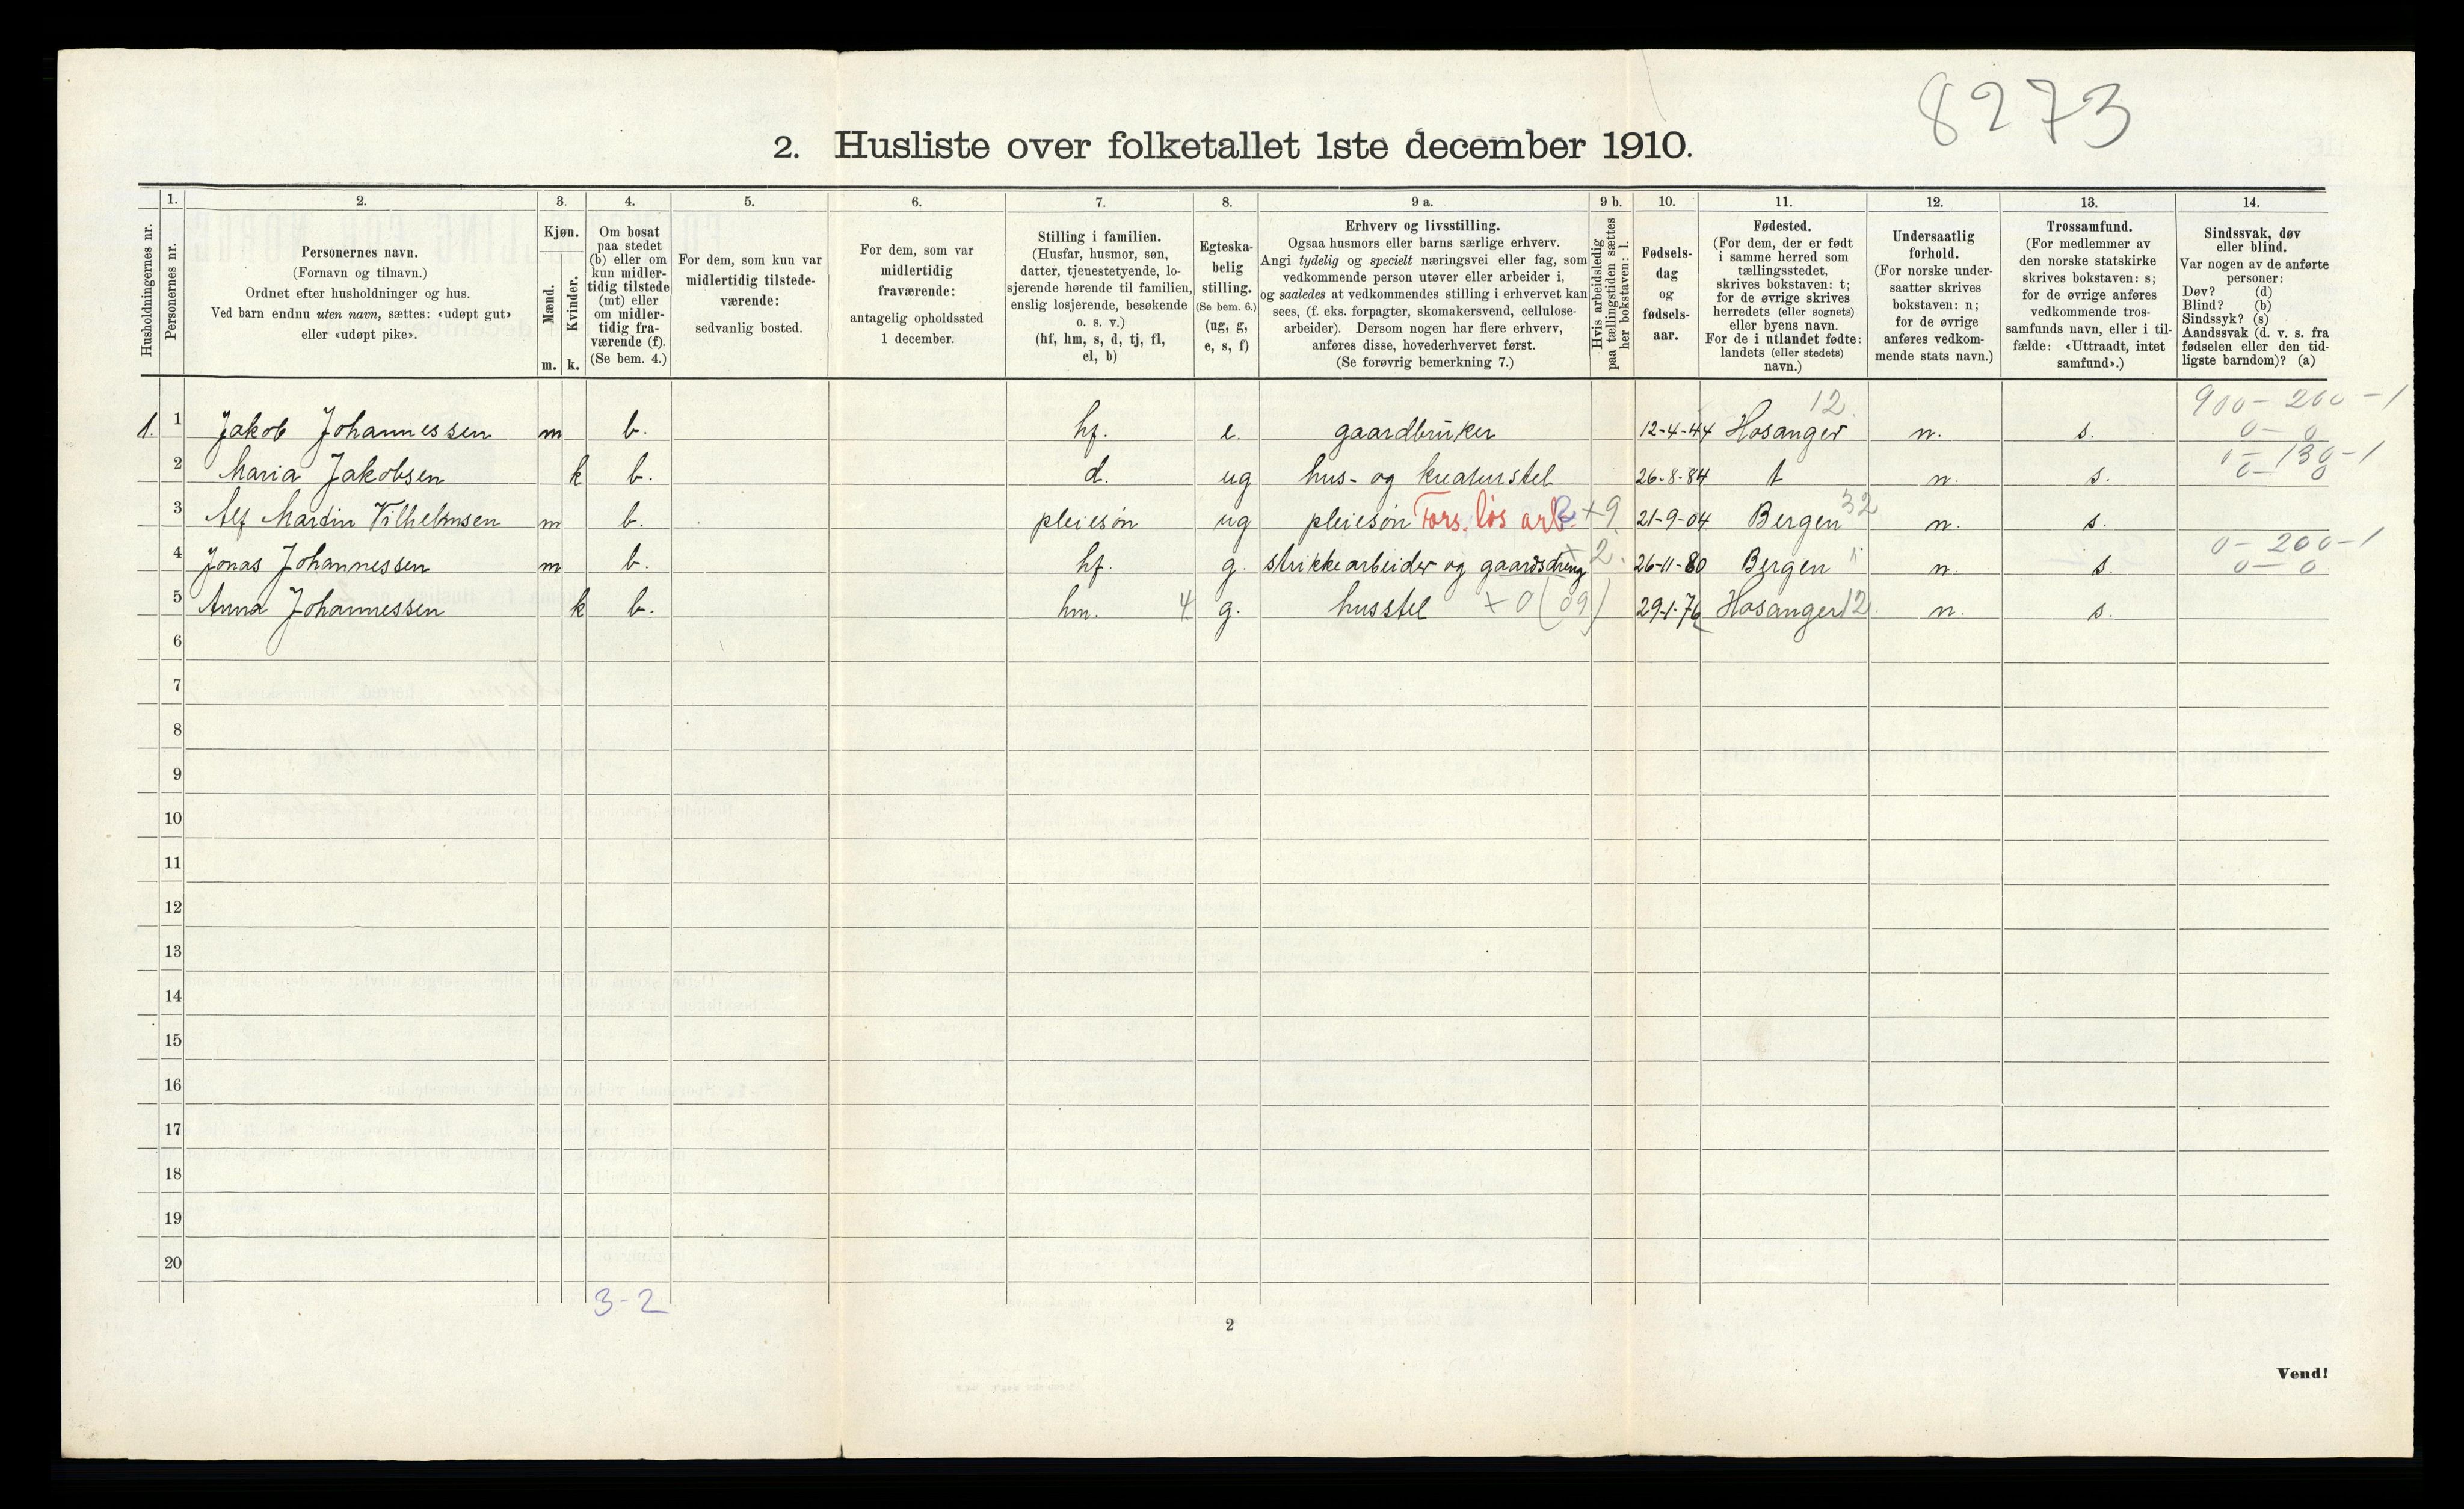 8273
2. Husliste over folketallet 1ste december 1910.
Husholdningernes nr.
1.
Personernes nr.
2.
Personernes navn.
(Fornavn og tilnavn.)
Ordnet efter husholdninger og hus.
Ved barn endnu uten navn, sættes: «udøpt gut»
eller «udøpt pike».
3.
Kjøn.
Mænd.
m.
Kvinder.
k.
4.
Om bosat
paa stedet
(b) eller om
kun midler-
tidig tilstede
(mt) eller
om midler-
tidig fra-
værende (f).
(Se bem. 4.)
5.
For dem, som kun var
midlertidig tilstede-
værende:
sedvanlig bosted.
6.
For dem, som var
midlertidig
fraværende:
antagelig opholdssted
1 december.
7.
Stilling i familien.
(Husfar, husmor, søn,
datter, tjenestetyende, lo-
sjerende hørende til familien,
enslig losjerende, besøkende
o. s. v.)
(hf, hm, s, d, tj, fl,
el, b)
8.
Egteska-
belig
stilling.
(Se bem. 6.)
(ug, g,
e, s, f)
9 a.
Erhverv og livsstilling.
Ogsaa husmors eller barns særlige erhverv.
Angi tydelig og specielt næringsvei eller fag, som
vedkommende person utøver eller arbeider i,
og saaledes at vedkommendes stilling i erhvervet kan
sees, (f. eks. forpagter, skomakersvend, cellulose-
arbeider). Dersom nogen har flere erhverv,
anføres disse, hovederhvervet først.
(Se forøvrig bemerkning 7.)
9 b.
Hvis arbeidsledig
paa tællingstiden sættes
her bokstaven: l.
10.
Fødsels-
dag
og
fødsels-
aar.
11.
Fødested.
(For dem, der er født
i samme herred som
tællingsstedet,
skrives bokstaven: t;
for de øvrige skrives
herredets (eller sognets)
eller byens navn.
For de i utlandet fødte:
landets (eller stedets)
navn.)
12.
Undersaatlig
forhold.
(For norske under-
saatter skrives
bokstaven: n;
for de øvrige
anføres vedkom-
mende stats navn.)
13.
Trossamfund.
(For medlemmer av
den norske statskirke
skrives bokstaven: s;
for de øvrige anføres
vedkommende tros-
samfunds navn, eller i til-
fælde: «Uttraadt, intet
samfund».)
14.
Sindssvak, døv
eller blind.
Var nogen av de anførte
personer:
Døv? (d)
Blind? (b)
Sindssyk? (s)
Aandssvak (d. v. s. fra
fødselen eller den tid-
ligste barndom)? (a)
1. 1 Jakob Johannessen m b. hf. e. gaardbruker 12-4-44 Hosanger 12 n. s. 900-200-1 0-0
2 Maria Jakobsen k b. d. ug hus- og kreaturstel 26-8-84 t n. s. 130-1 0-0
3 Alf Martin Vilhelmsen m b. pleiesøn ug pleiesøn Fors. løs arb. +9 21-9-04 Bergen 32 n. s.
4 Jonas Johannessen m b. hf. g. strikkearbeider og gaardsdreng +2. 26-11-80 Bergen " n. s. 0-200-1 0-0
5 Anna Johannessen k b. hm. 4 g. husstel +0 (09) 29-1-76 Hosanger 12. n. s.
6
7
8
9
10
11
12
13
14
15
16
17
18
19
20
3-2
2
Vend!